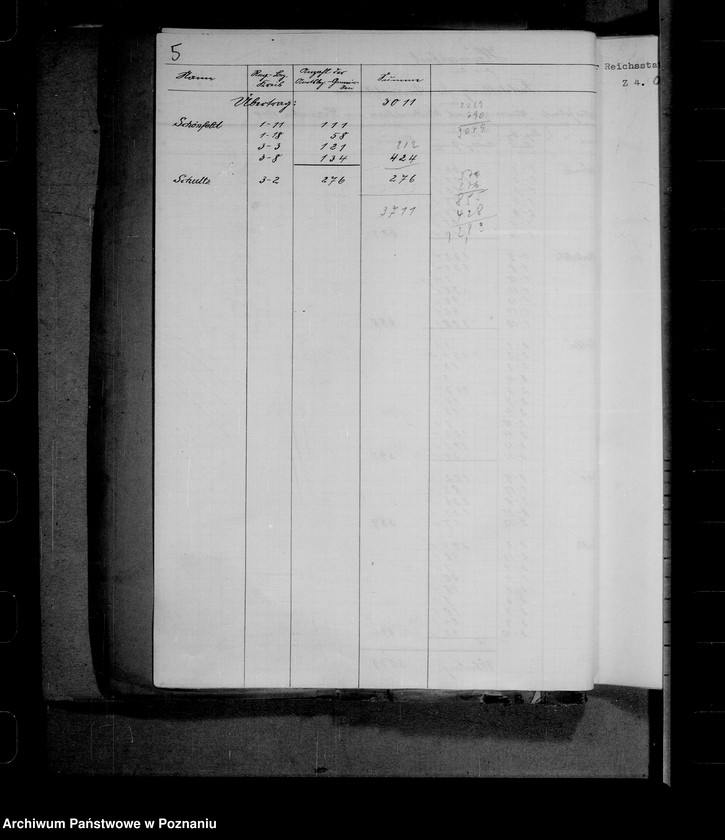 5
Name Reg.-Bez. Kreis Anzahl der Summe
Übertrag: 3011
Schönfeldt 1-11 111
1-18 58
3-3 121 212
3-8 134 424
Schultz 3-2 276 276
3711
428
Reichssta
Z 4.
Archiwum Państwowe w Poznaniu